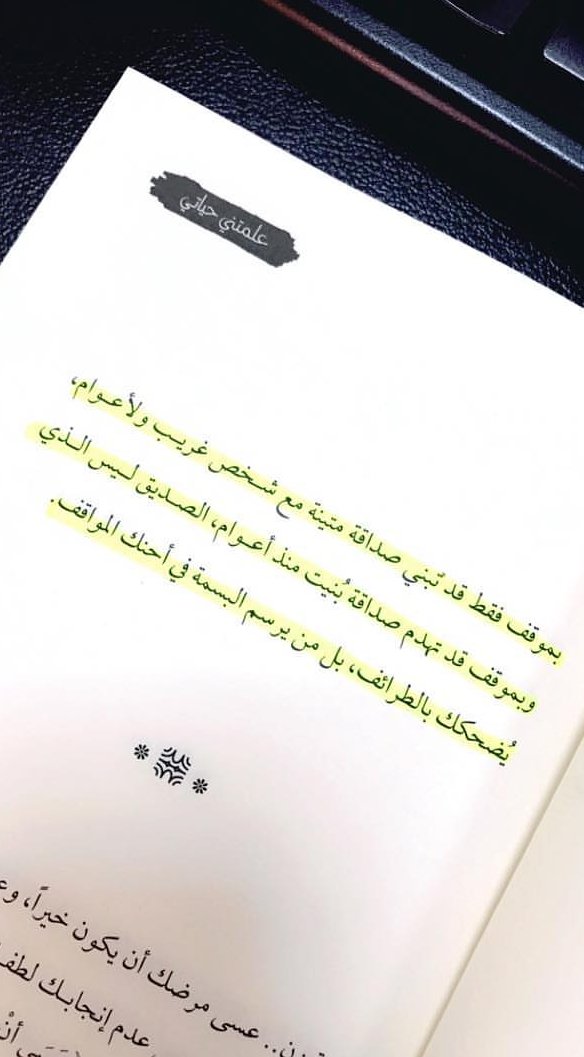 علمتني حياتي
بموقف فقط قد تبني صداقة متينة مع شخص غريب ولأعوام،
وبموقف قد تهدم صداقة بُنيت منذ أعوام، الصديق ليس الذي
يُضحكك بالطرائف، بل من يرسم البسمة في أحنك المواقف.
عسى مرضك أن يكون خيراً،
عدم إنجابك